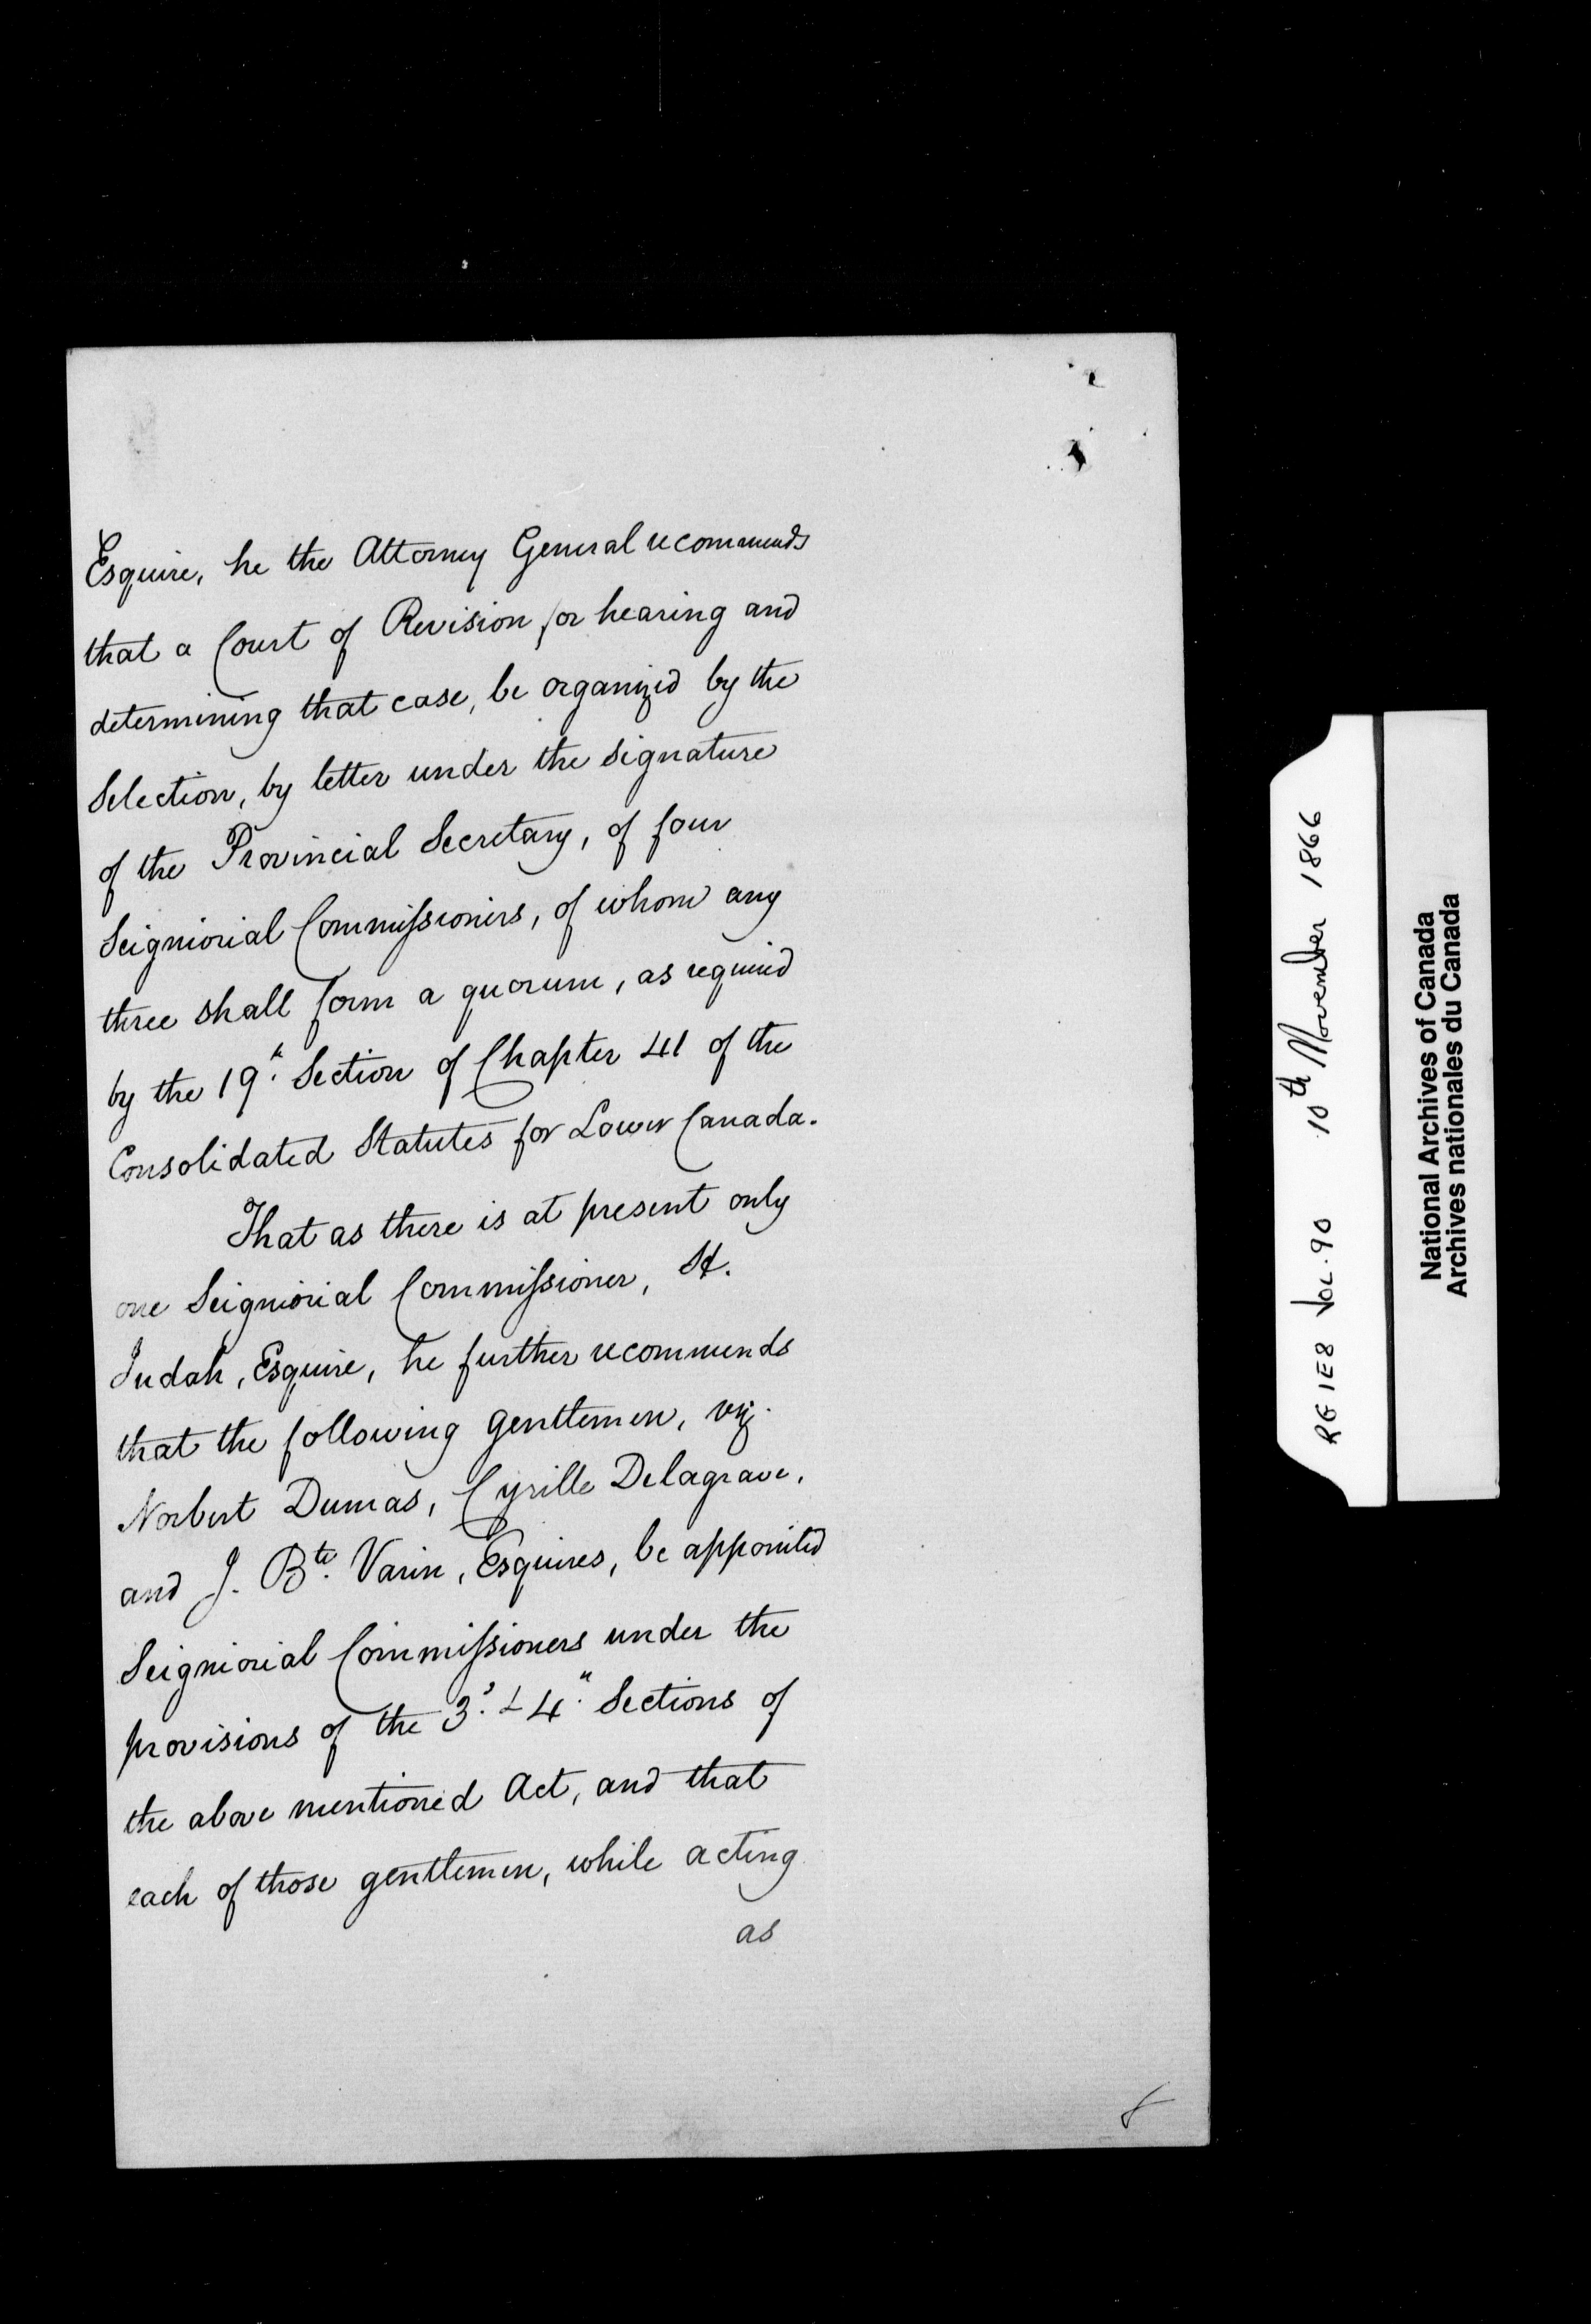 Esquire, he the Attorney General recommends
that a Court of Revision for hearing and
determining that case, be organized by the
Selection, by letter under the signature
of the Provincial Secretary, of four
Seigniorial Commissioners, of whom any
three shall form a quorum, as required
by the 19th. Section of Chapter 41 of the
Consolidated Statutes for Lower Canada.
That as there is at present only
one Seigniorial Commissioner, H.
Judah, Esquire, he further recommends
that the following gentlemen, viz.
Norbert Dumas, Cyrille Delagrave,
and J. Bte. Varin, Esquires, be appointed
Seigniorial Commissioners under the
provisions of the 3d. & 4th. Sections of
the above mentioned Act, and that
each of those gentlemen, while acting
as
RG 1E8 Vol. 90 10th November 1866
National Archives of Canada
Archives nationales du Canada